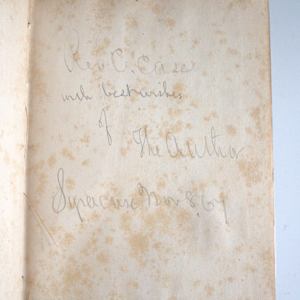 Rev C. Case
with best wishes
of
The Author
Syracuse Nov 8, 67